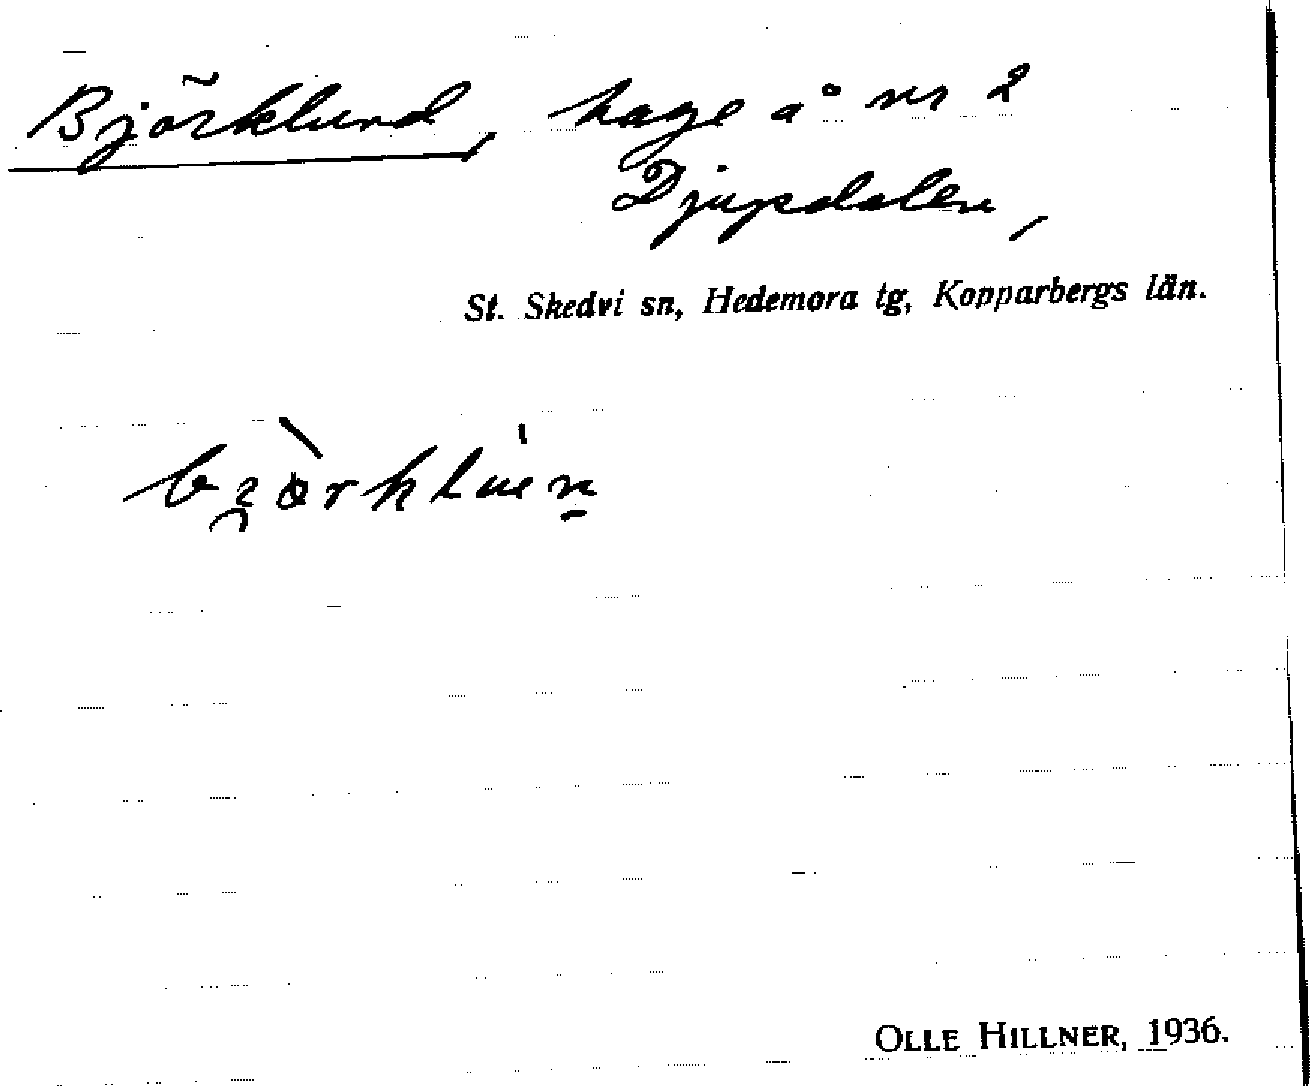 Björklund, hage å nr 2
Djupdalen,
St. Skedvi sn, Hedemora tg, Kopparbergs län.
OLLE HILLNER, 1936.